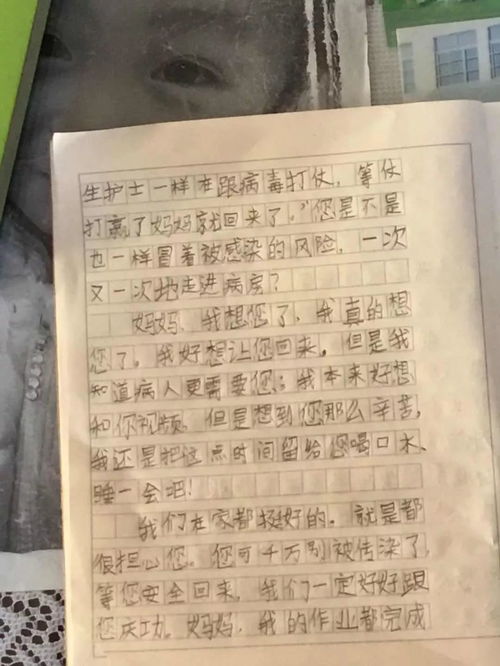 生护士一样在跟病毒打仗，等仗
打赢了妈妈就回来了。”您是不是
也一样冒着被感染的风险，一次
又一次地走进病房？
妈妈，我想您了，我真的想
您了。我好想让您回来。但是我
知道病人更需要您；我本来好想
和你视频，但是想到您那么辛苦，
我还是把这点时间留给您喝口水、
睡一会吧！
我们在家都挺好的。就是都
很担心您。您可千万别被传染了，
等您安全回来，我们一定好好跟
您庆功。妈妈，我的作业都完成